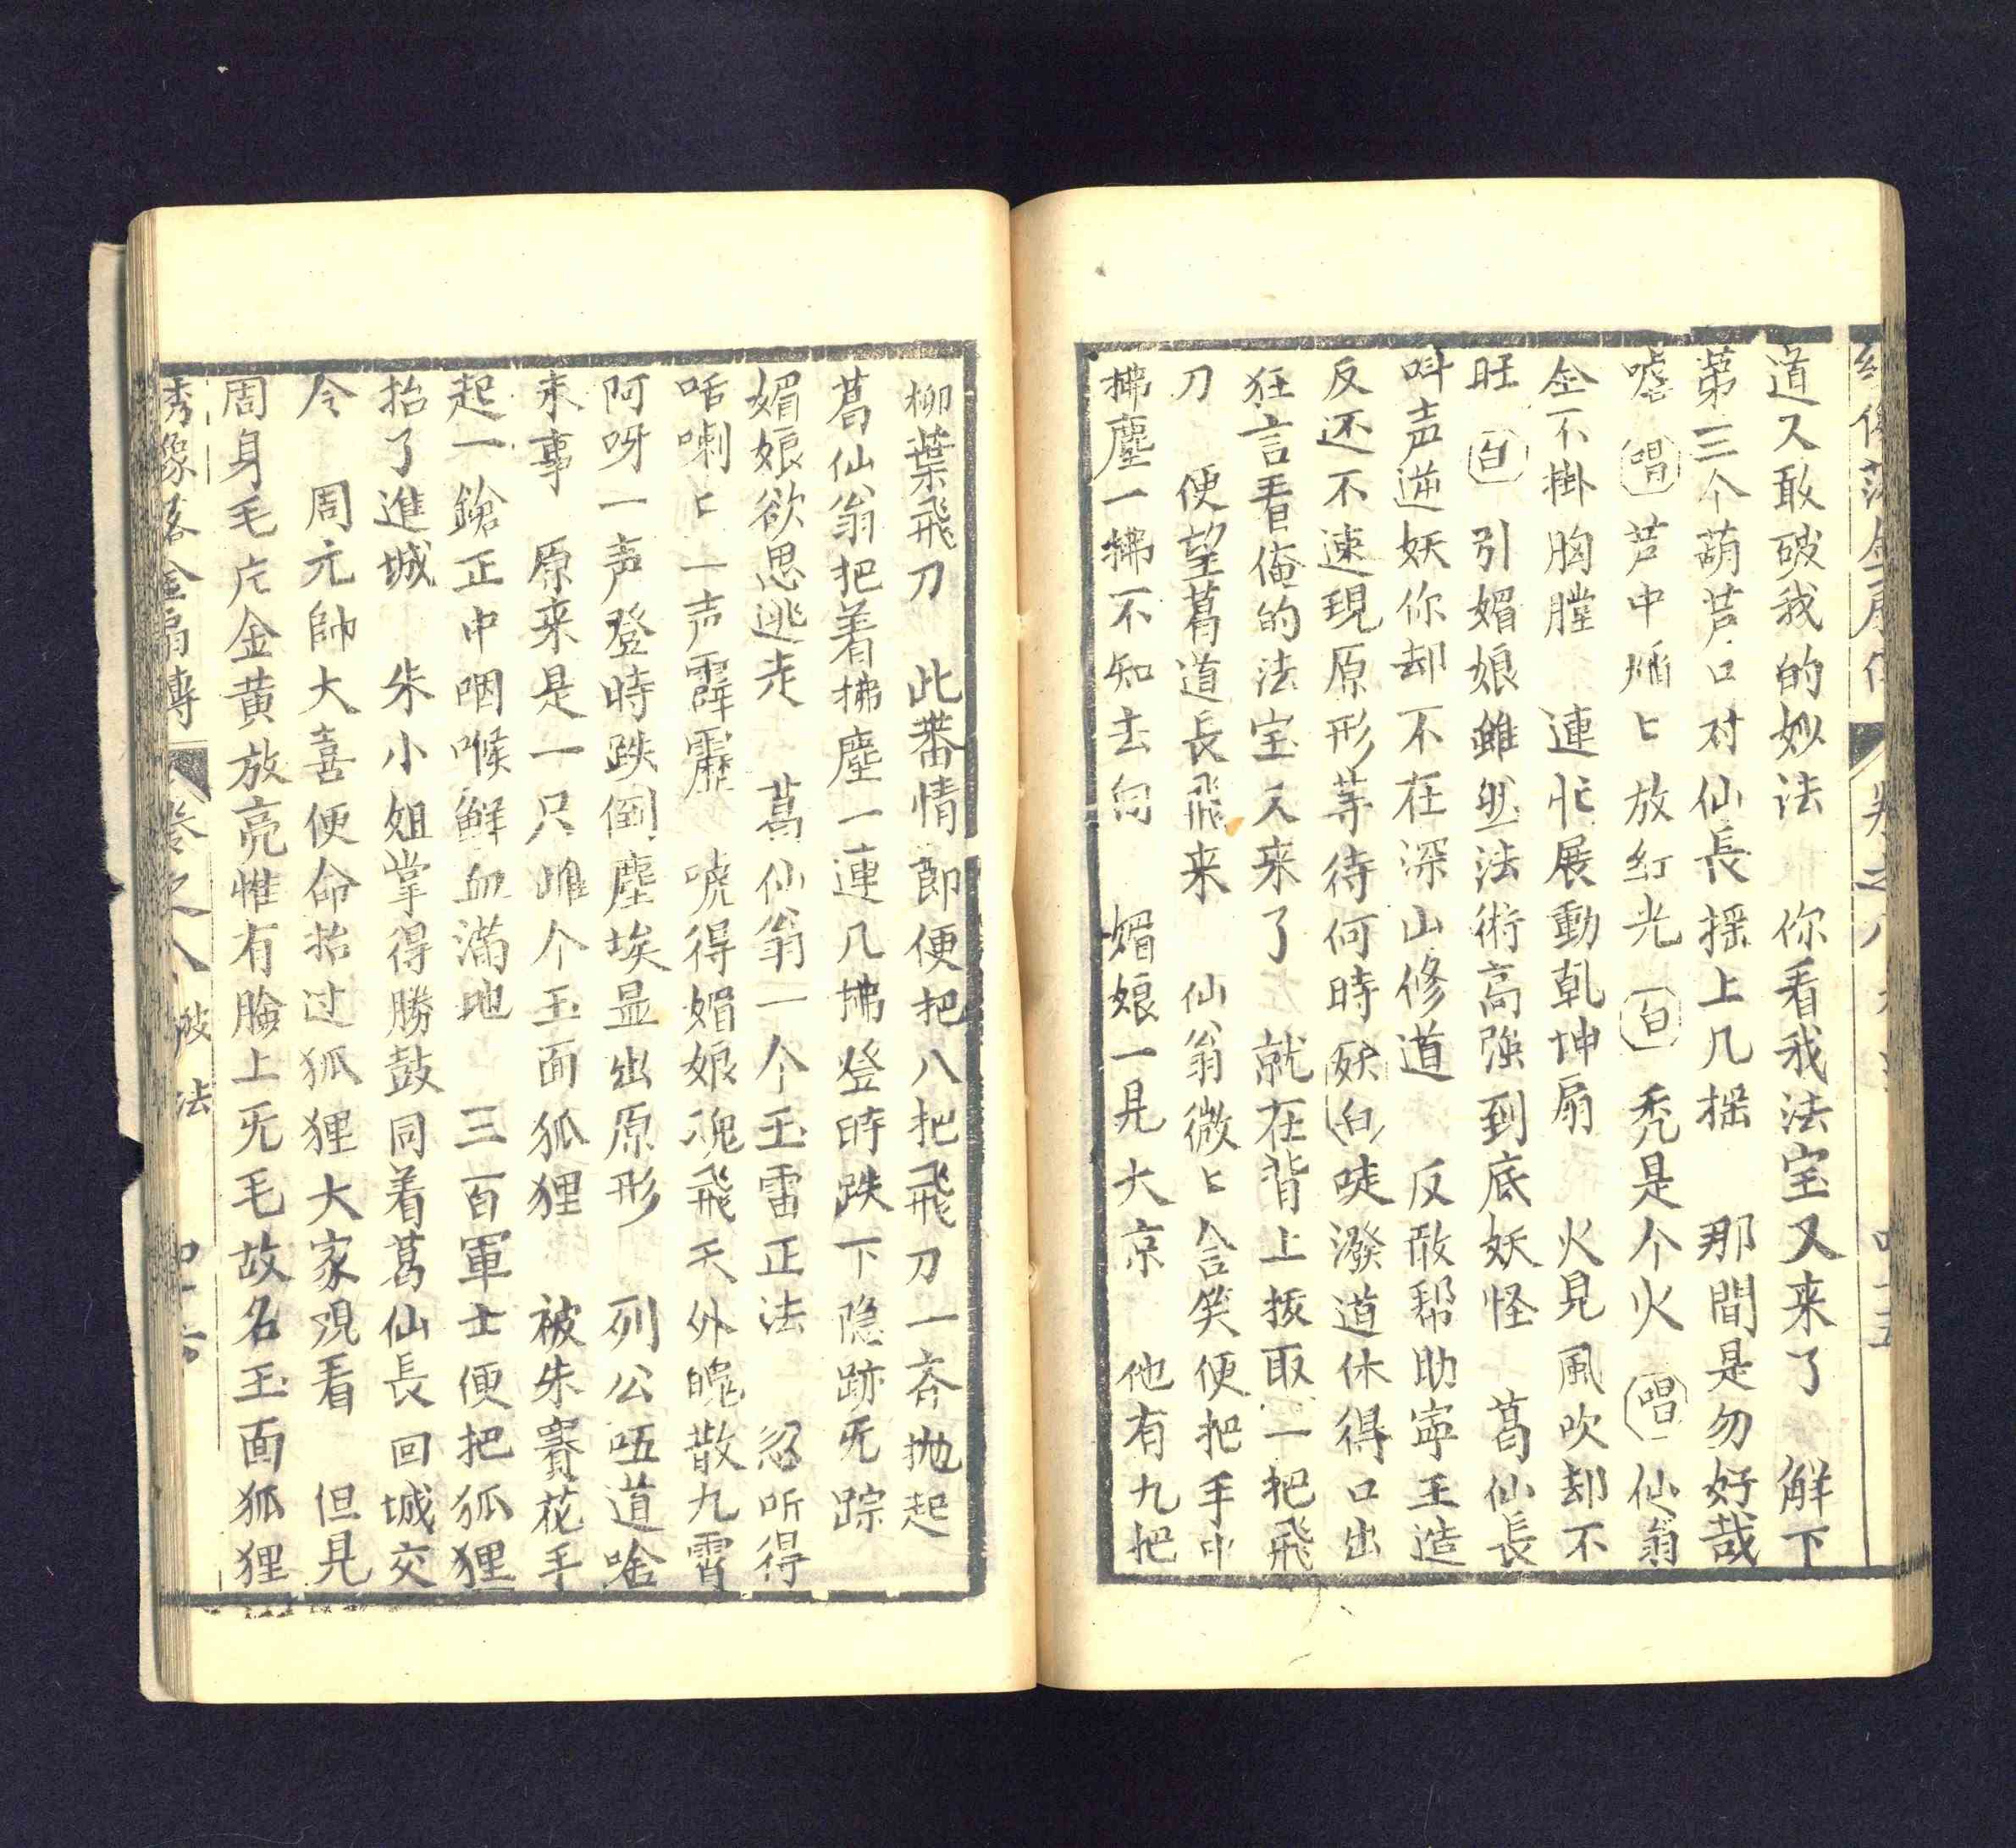 道又敢破我的妙法　你看我法宝又来了　解下
第三个葫芦口对仙長摇上几摇　那間是勿好哉
嘘 唱 芦中焰〻放红光 白 秃是个火 唱 仙翁
仝不掛胸膛　連忙展動乹坤扇　火見風吹却不
旺 白 引媚娘雖然法術高強到底妖怪　葛仙長
呌声逆妖你却不在深山修道　反敢帮助寜王造
反还不速現原形等待何時 妖白 唗潑道休得口出
狂言看俺的法宝又来了　就在背上拔取一把飛
刀　便望葛道長飛来　仙翁微〻含笑便把手中
拂塵一拂不知去向　媚娘一見大京　他有九把
柳葉飛刀　此番情即便把八把飛刀一斉抛起
葛仙翁把着拂塵一連几拂登時跌下隐跡旡踪
媚娘欲思逃走　葛仙翁一个玉雷正法　忽听得
咶喇〻一声霹靂　唬得媚娘魂飛天外魄散九霄
阿呀一声登時跌倒塵埃显出原形　列公呒道啥
来事　原来是一只雌个玉面狐狸　被朱賽花手
起一鎗正中咽喉鲜血滿地　三百軍士便把狐狸
抬了進城　朱小姐掌得勝鼓同着葛仙長回城交
令　周元帥大喜便命抬过狐狸大家观看　但見
周身毛片金黄放亮惟有臉上旡毛故名玉面狐狸
秀像落金扇傳　卷之八　破法　四十六